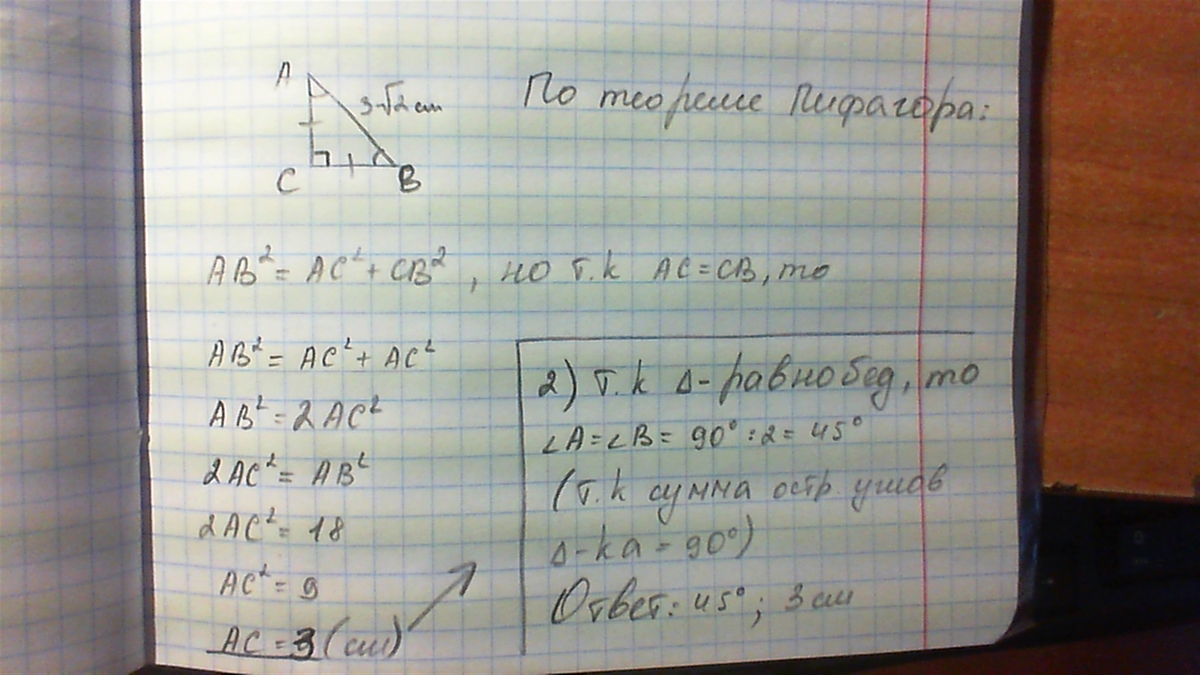 A
3√2 см
C
B
По теореме Пифагора:
AB² = AC² + CB², но т.к AC = CB, то
AB² = AC² + AC²
AB² = 2AC²
2AC² = AB²
2AC² = 18
AC² = 9
AC = 3 (см)
2) т.к Δ-равнобед, то
∠A = ∠B = 90° : 2 = 45°
(т.к сумма остр углов
Δ-ка = 90°)
Ответ: 45°; 3 см